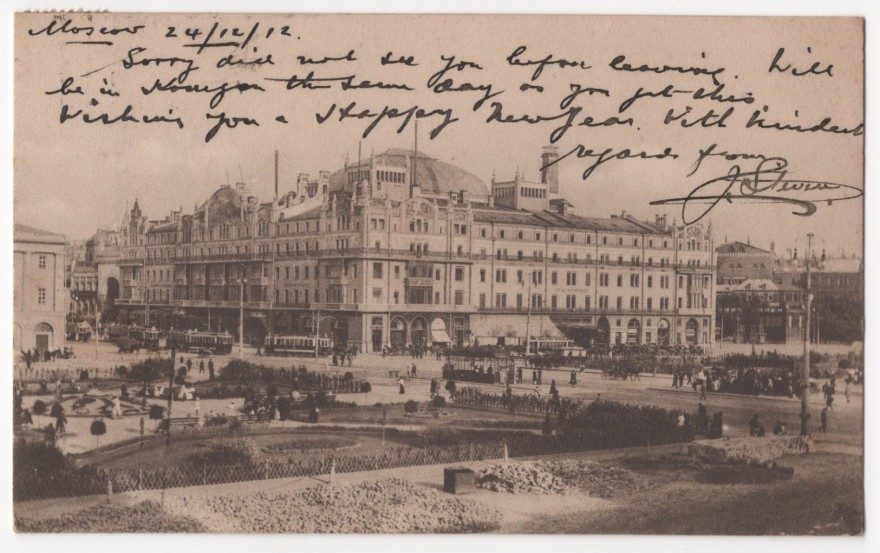 Moscow 24/12/12.
Sorry did not see you before leaving. Will
be in the same day as you get this
Wishing you a Happy New Year. With kindest
regards from
J. Steven